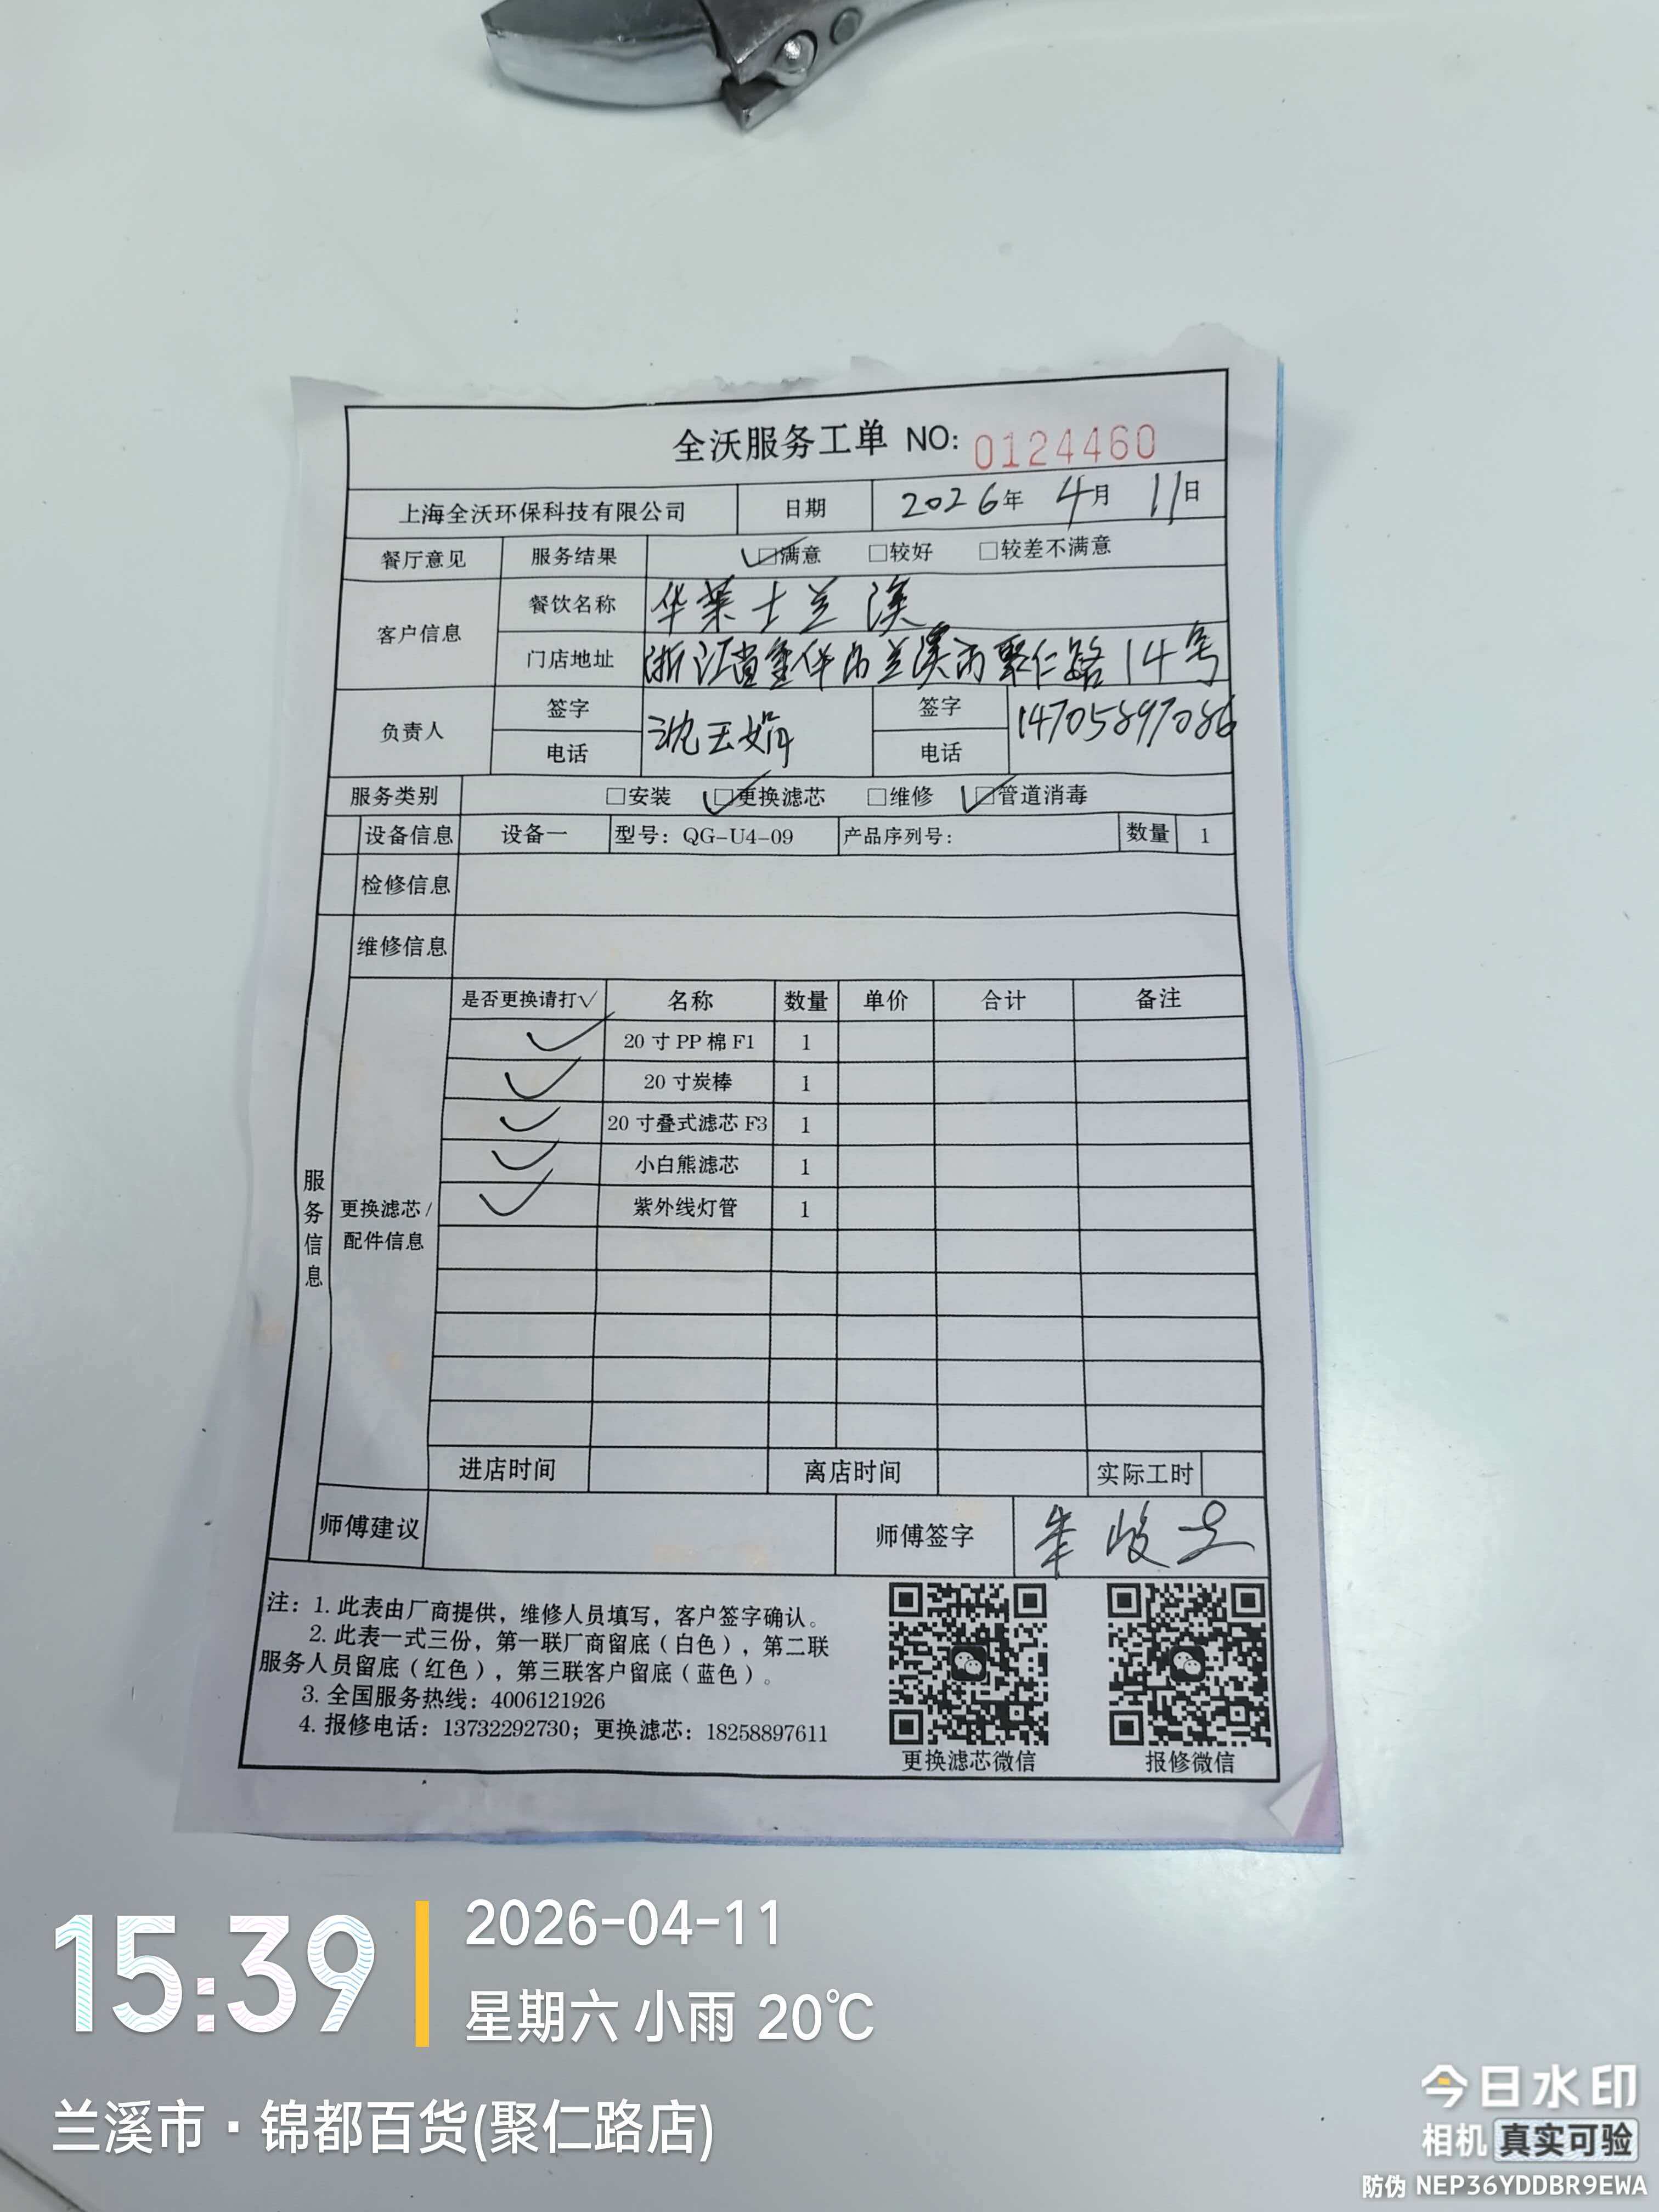 全沃服务工单 NO: 0124460
上海全沃环保科技有限公司 日期 2026年 4月 11日
餐厅意见 服务结果 ☑满意 □较好 □较差不满意
客户信息 餐饮名称 华莱士兰溪
门店地址 浙江省金华市兰溪市聚仁路14号
负责人 签字 沈玉娟 签字 14705897086
电话 电话
服务类别 □安装 ☑更换滤芯 □维修 ☑管道消毒
设备信息 设备一 型号：QG-U4-09 产品序列号： 数量 1
检修信息
维修信息
服务信息
更换滤芯/配件信息
是否更换请打√ 名称 数量 单价 合计 备注
√ 20寸PP棉F1 1
√ 20寸炭棒 1
√ 20寸叠式滤芯F3 1
√ 小白熊滤芯 1
√ 紫外线灯管 1
进店时间 离店时间 实际工时
师傅建议 师傅签字
注：1.此表由厂商提供，维修人员填写，客户签字确认。
2.此表一式三份，第一联厂商留底（白色），第二联
服务人员留底（红色），第三联客户留底（蓝色）。
3.全国服务热线：4006121926
4.报修电话：13732292730；更换滤芯：18258897611
更换滤芯微信 报修微信
15:39
2026-04-11
星期六 小雨 20℃
兰溪市·锦都百货(聚仁路店)
今日水印
相机 真实可验
防伪 NEP36YDDBR9EWA